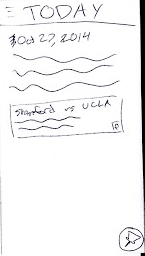 TODAY
Oct 27, 2014
Stanford vs UCLA